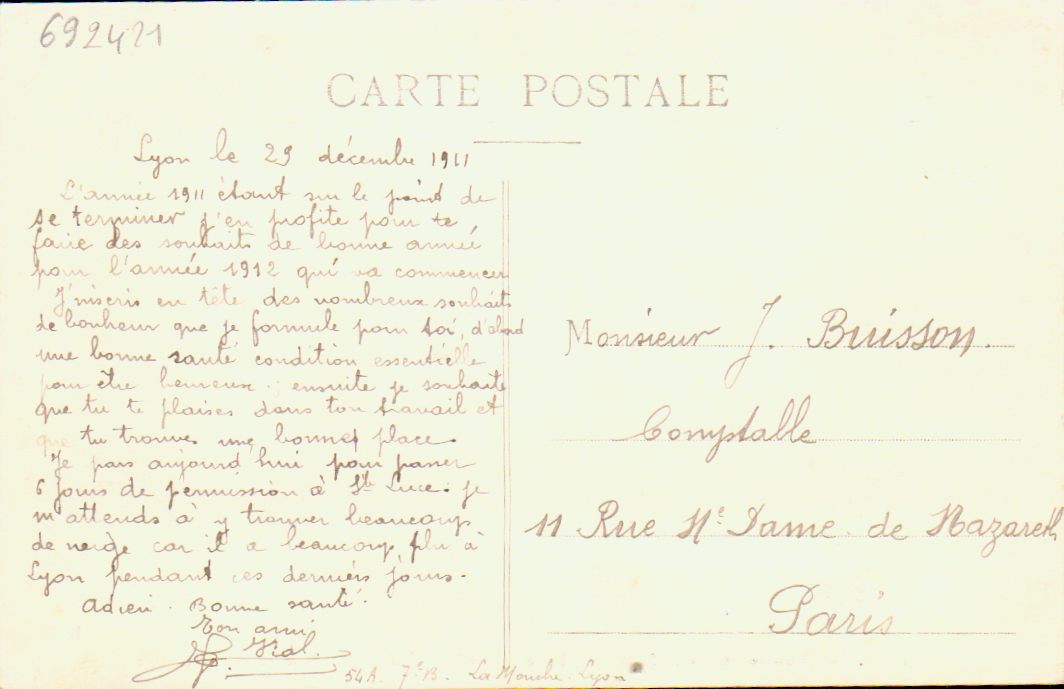 692421
CARTE POSTALE
Lyon le 29 décembre 1911
L'année 1911 étant sur le point de
se terminer j'en profite pour te
faire des souhaits de bonne année
pour l'année 1912 qui va commencer
J'inscris en tête des nombreux souhaits
de bonheur que je formule pour toi, d'abord
une bonne santé condition essentielle
pour être heureux ; ensuite je souhaite
que tu te plaises dans ton travail et
que tu trouves une bonne place.
Je pars aujourd'hui pour passer
6 jours de permission à Ste Luce. je
m'attends à y trouver beaucoup
de neige car il a beaucoup plu à
Lyon pendant ces derniers jours.
Adieu. Bonne santé.
Ton ami
Vial.
54A. 7e B. La Mouche. Lyon
Monsieur J. Buisson.
Comptable
11 Rue Ne Dame de Nazareth
Paris